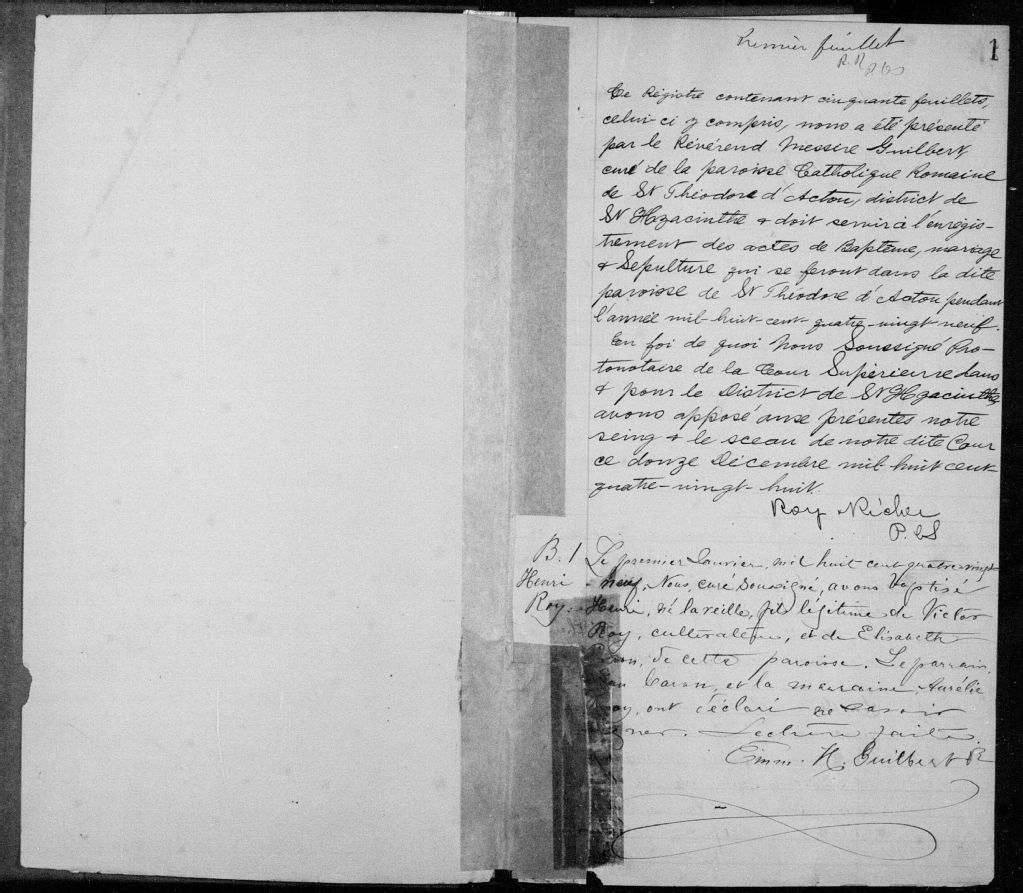 1
Premier feuillet
Ce Régistre contenant cinquante feuillets,
celui-ci y compris, nous a été présenté
par le Révérend Messire Guilbert,
curé de la paroisse Catholique Romaine
de St Théodore d'Acton, district de
St Hyacinthe & doit servir à l'enrégis-
trement des actes de Baptême, mariage
& Sépulture qui se feront dans la dite
paroisse de St Théodore d'Acton pendant
l'année mil-huit-cent-quatre-vingt neuf.
En foi de quoi Nous Soussigné Pro-
tonotaire de la Cour Supérieure dans
& pour le District de St Hyacinthe
avons apposé aux présentes notre
seing & le sceau de notre dite Cour
ce douze Décembre mil huit cent
quatre-vingt-huit.
Roy Richer
P.C.S
B. 1
Henri
Roy.
Le premier Janvier, mil huit cent quatre-vingt
-neuf, Nous, curé soussigné, avons baptisé
Henri, né la veille, fils légitime de Victor
Roy, cultivateur, et de Elisabeth
de cette paroisse. Le parrain,
Caron, et la marraine, Aurélie
ont déclaré ne savoir
Lecture faite.
Emm. H. Guilbert